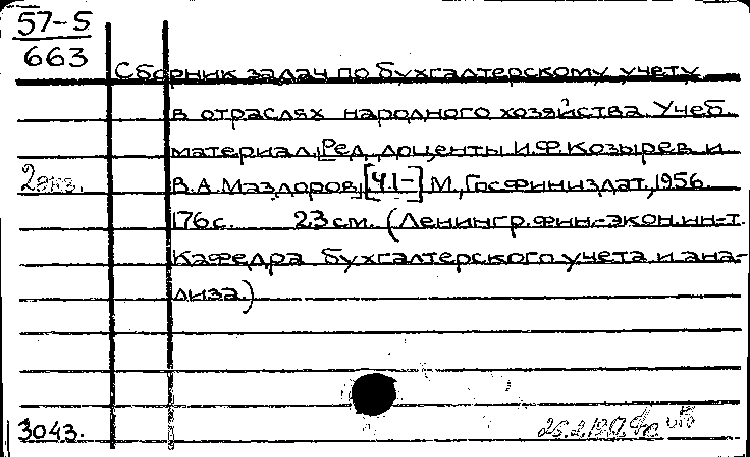 57-5
663
Сборник задач по бухгалтерскому учету
в отраслях народного хозяйства. Учеб.
материал. Ред. доценты И.Ф. Козырев и
2 экз.
В.А. Маздоров. [Ч.1-] М., Госфиниздат, 1956.
176 с. 23 см. (Ленингр. фин.-экон. ин-т.
Кафедра бухгалтерского учета и ана-
лиза.)
3043.